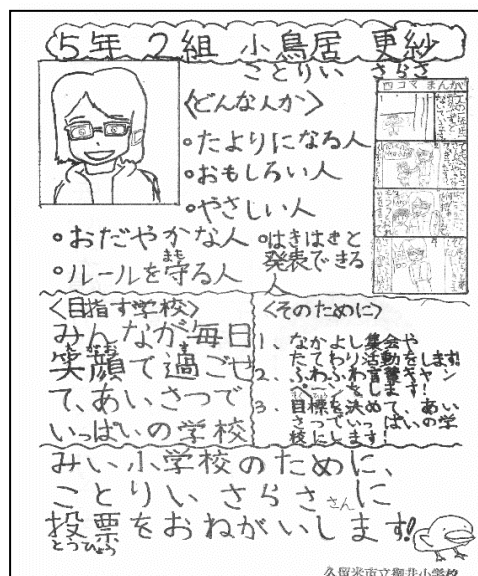 5年 2組 小鳥居 更紗
ことりい さらさ
〈どんな人か〉
・たよりになる人
・おもしろい人
・やさしい人
・おだやかな人
・ルールを守る人
まも
・はきはきと
発表できる
人
四コマ まんが
〈目指す学校〉
みんなが毎日
笑顔で過ごせ
えがお す
て、あいさつで
いっぱいの学校
〈そのために〉
1、なかよし集会や
たてわり活動をします!
2、ふわふわ言葉キャン
ペーンをします!
3、目標を決めて、あい
さつでいっぱいの学
校にします!
みい小学校のために、
ことりい さらささんに
投票をおねがいします!!
とうひょう
久留米市立御井小学校